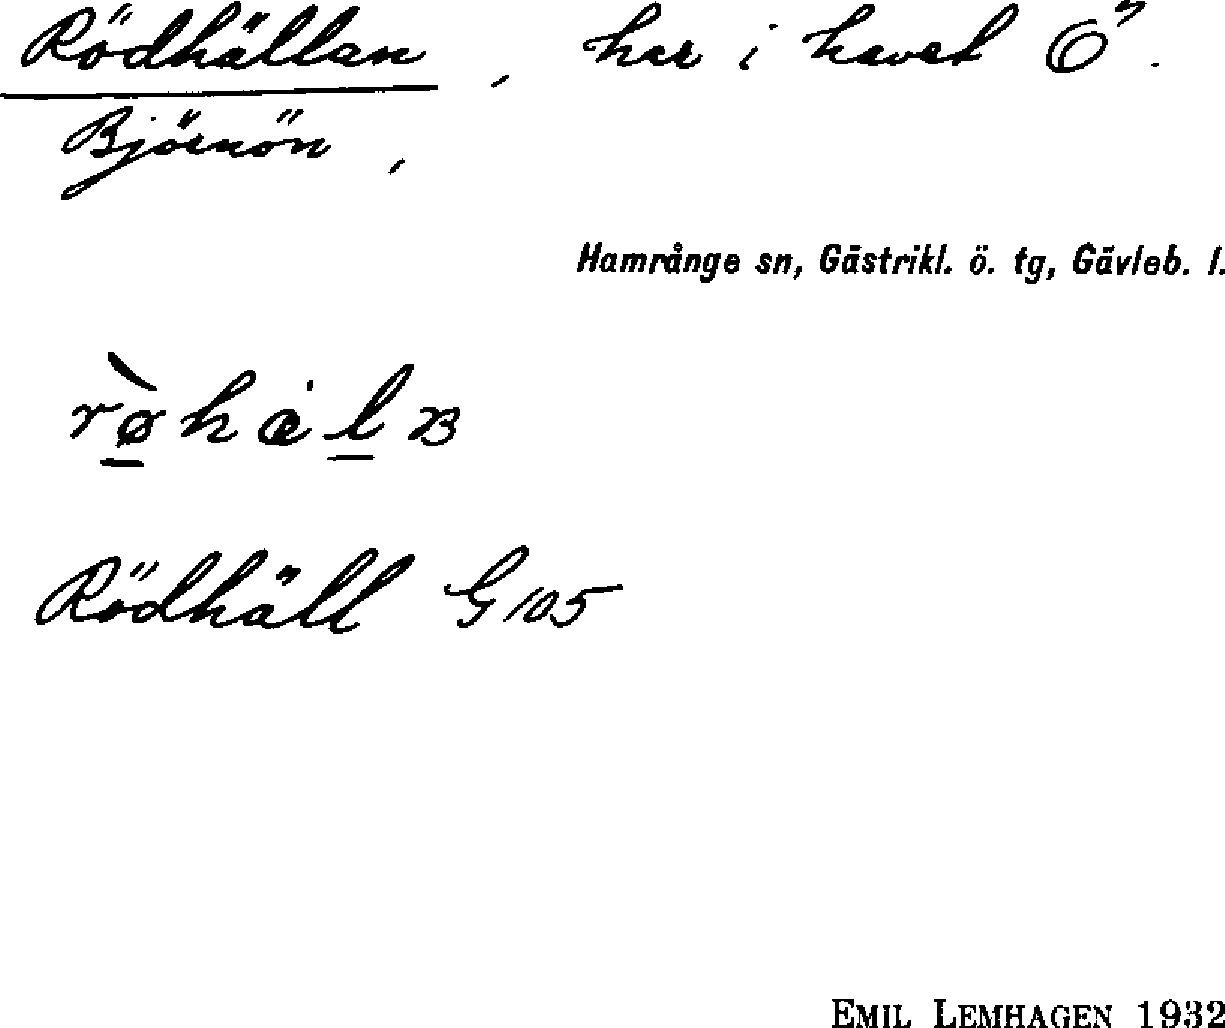 Rödhällan, här i havet Ö.
Björnön,
Hamrånge sn, Gästrikl. ö. tg, Gävleb. l.
Rödhäll G 105
EMIL LEMHAGEN 1932